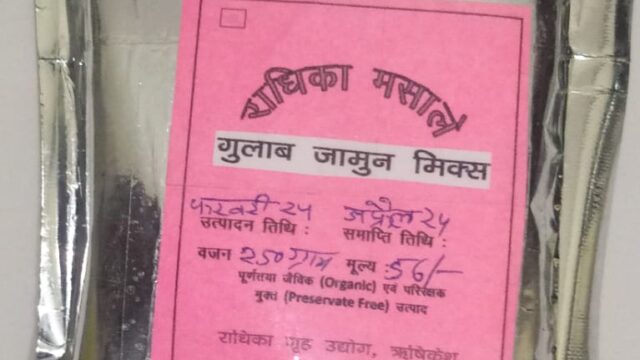 राधिका मसाले
गुलाब जामुन मिक्स
फरवरी २५ अप्रैल २५
उत्पादन तिथि : समाप्ति तिथि :
वजन २५० ग्राम मूल्य : 56/-
पूर्णतया जैविक (Organic) एवं परिरक्षक
मुक्त (Preservate Free) उत्पाद
राधिका गृह उद्योग, ऋषिकेश